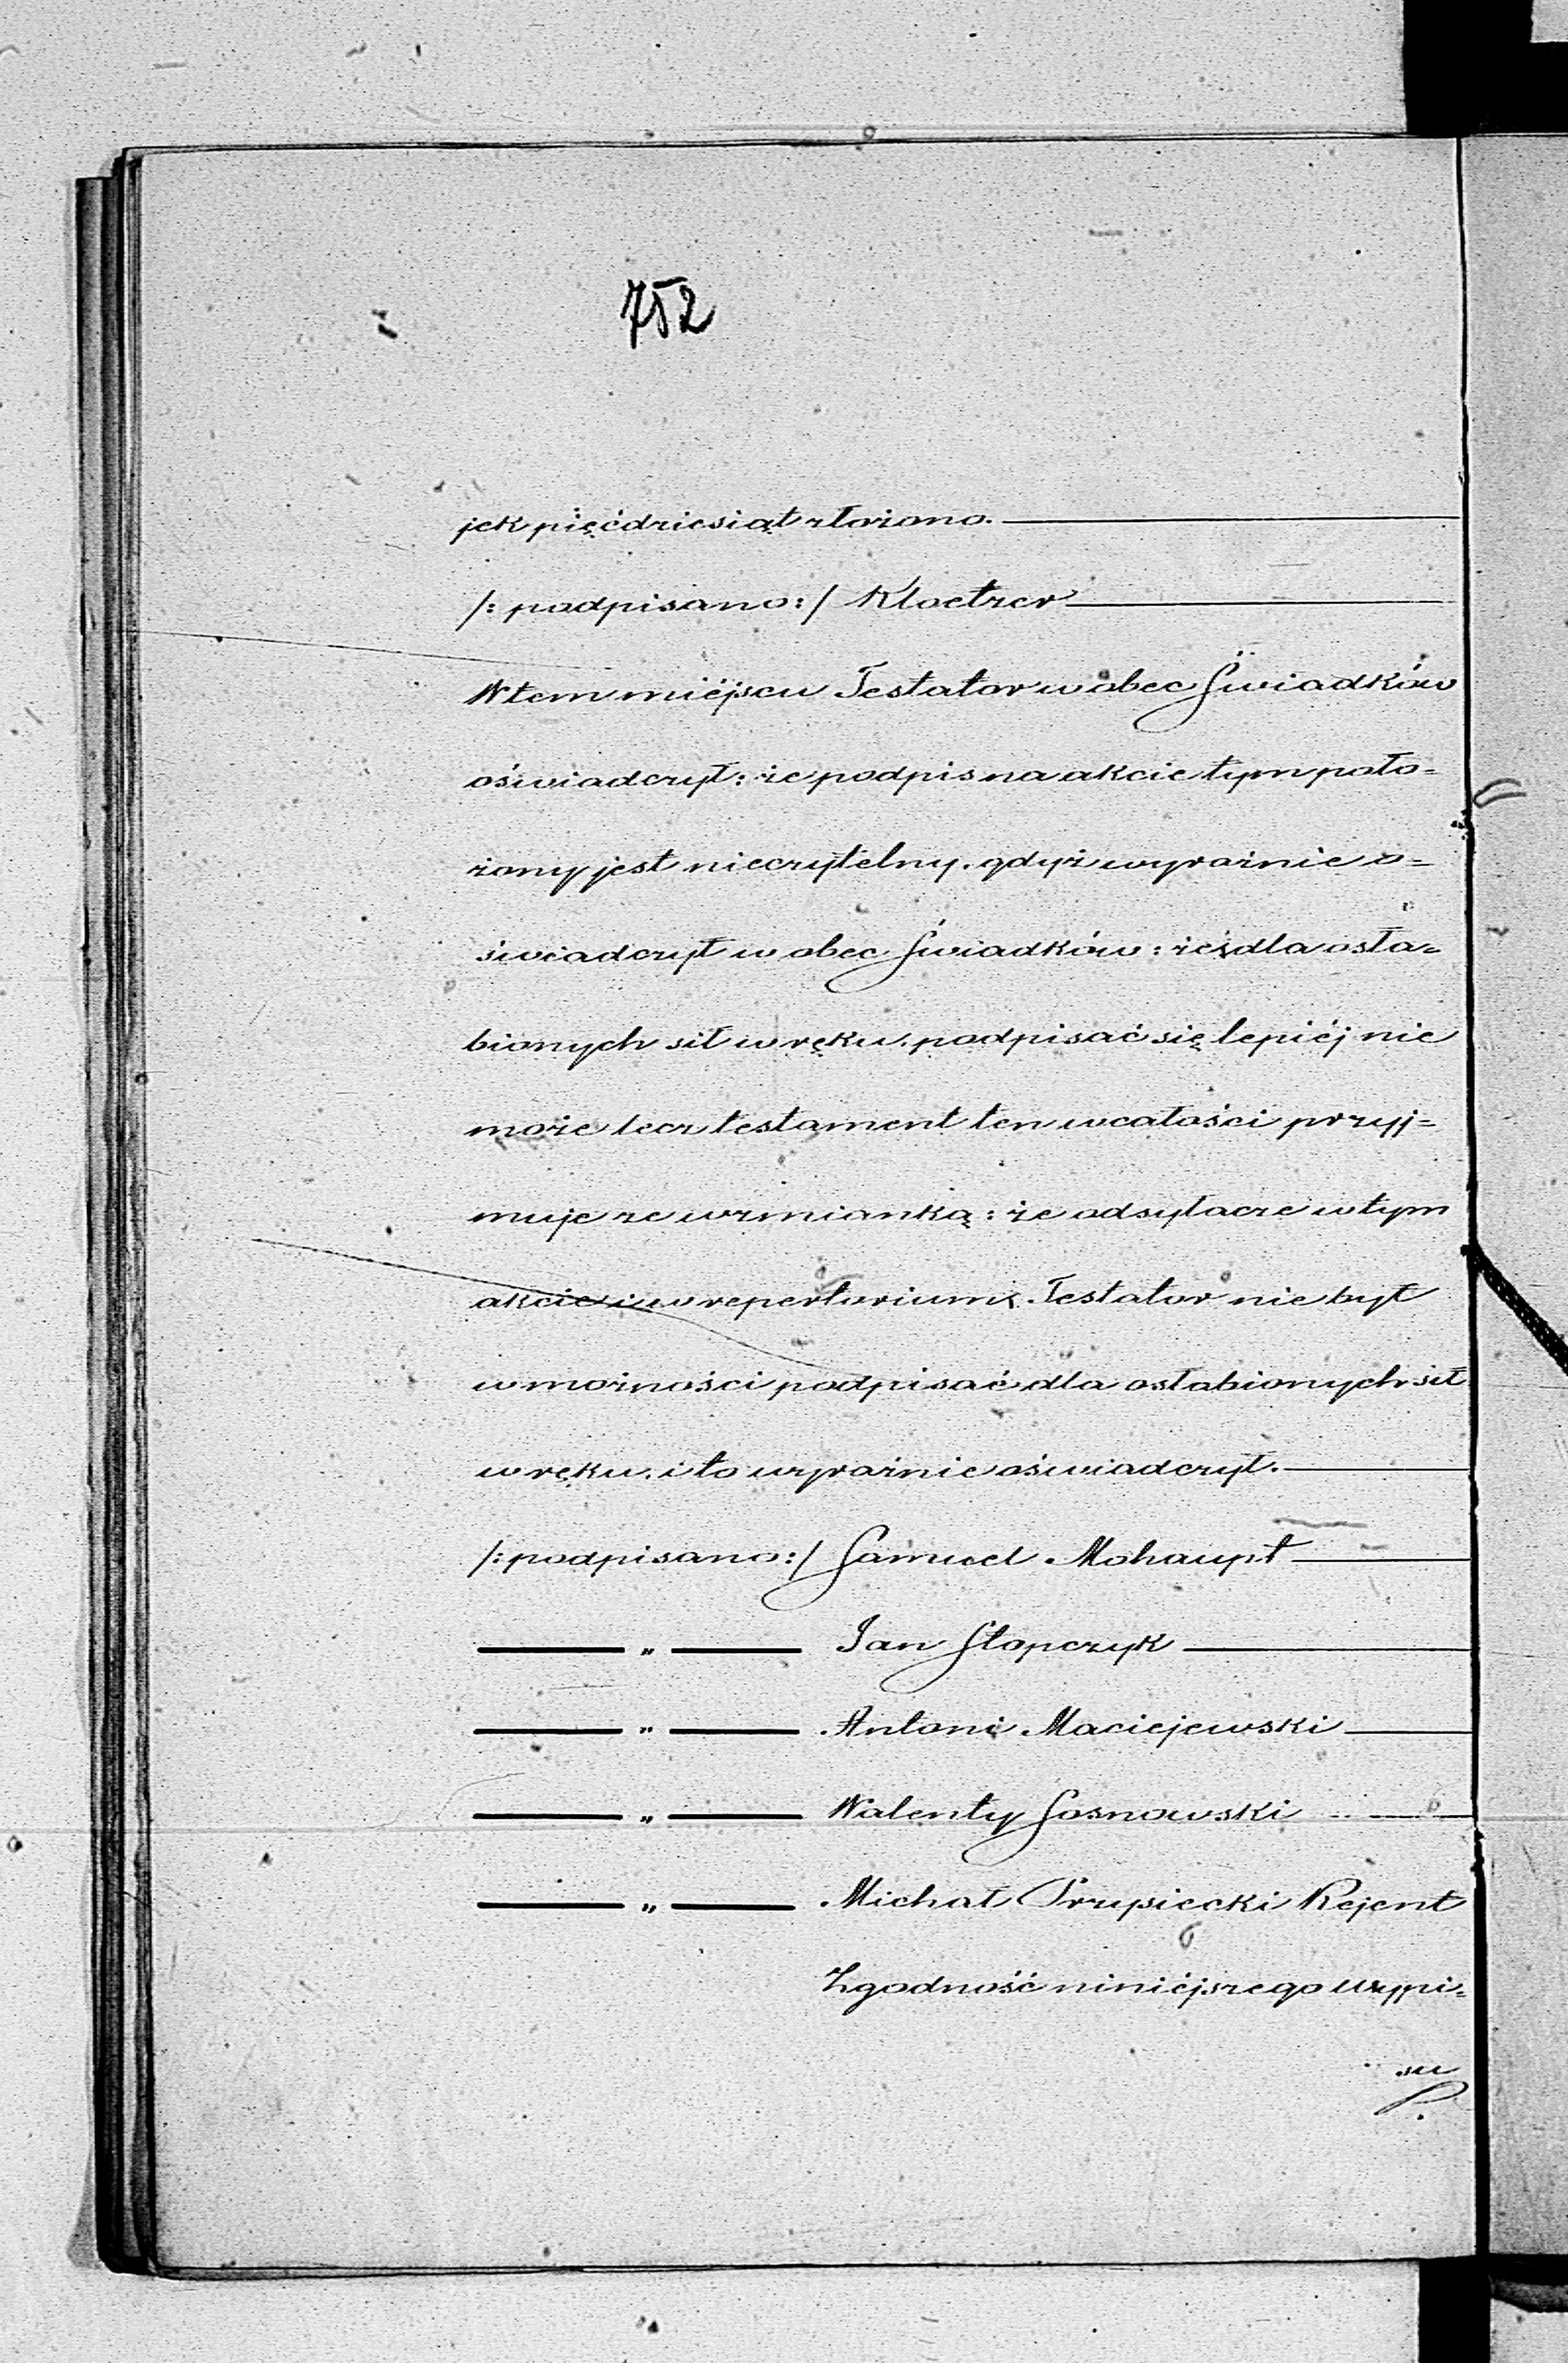 752
jek pięćdziesiąt złożono.
/: podpisano :/ Kloetzer
W tem miéjscu Testator w obec Świadków
oświadczył: że podpis na akcie tym poło=
żony jest nieczytelny. gdyż wyraźnie o=
świadczył w obec Świadków: że dla osła=
bionych sił w ręku. podpisać się lepiéj nie
może lecz testament ten w całości przyj=
muje ze wzmianką: że odsyłacze w tym
akcie i w repertorium. Testator nie był
w możności podpisać dla osłabionych sił
w ręku. i to wyraźnie oświadczył.
/: podpisano :/ Samuel Mohaupt
„ Jan Słopczyk
„ Antoni Maciejewski
„ Walenty Sosnowski
„ Michał Przysiecki Rejent
Zgodność niniéjszego wypi=
su